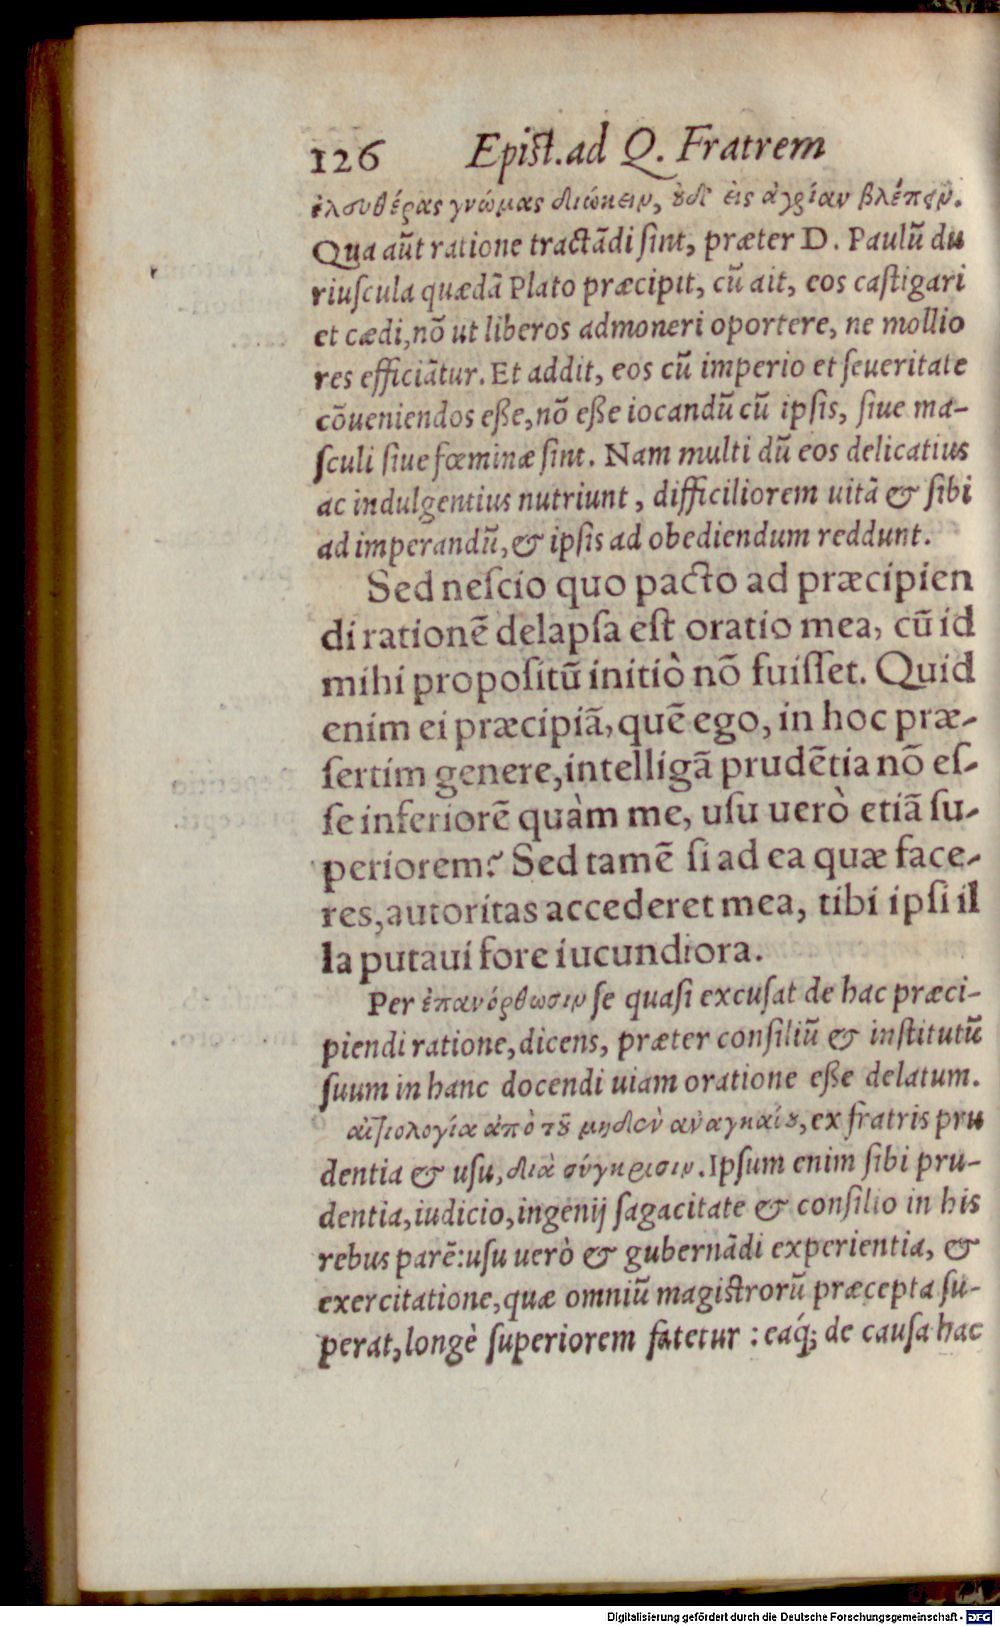 126 Epist. ad Q. Fratrem
ἐλευθέρας γνώμας διώκειν, οὐδ' εἰς ἀγρίαν βλέπειν.
Qua aūt ratione tractādi ſint, præter D. Paulū du
riuſcula quædā Plato præcipit, cū ait, eos caſtigari
et cædi, nō ut liberos admoneri oportere, ne mollio
res efficiātur. Et addit, eos cū imperio et ſeueritate
cōueniendos eſſe, nō eſſe iocandū cū ipſis, ſiue ma-
ſculi ſiue fœminæ ſint. Nam multi dū eos delicatius
ac indulgentius nutriunt, difficiliorem uitā & ſibi
ad imperandū, & ipſis ad obediendum reddunt.
Sed neſcio quo pacto ad præcipien
di rationē delapſa eſt oratio mea, cū id
mihi propoſitū initiò nō fuiſſet. Quid
enim ei præcipiā, quē ego, in hoc præ-
ſertim genere, intelligā prudētia nō eſ-
ſe inferiorē quàm me, uſu uerò etiā ſu-
periorem? Sed tamē ſi ad ea quæ face-
res, autoritas accederet mea, tibi ipſi il
la putaui fore iucundiora.
Per ἐπανόρθωσιν ſe quaſi excuſat de hac præci-
piendi ratione, dicens, præter conſiliū & inſtitutū
ſuum in hanc docendi uiam oratione eſſe delatum.
αἰτιολογία ἀπὸ τοῦ μηδὲν ἀναγκαίου, ex fratris pru
dentia & uſu, διὰ σύγκρισιν. Ipſum enim ſibi pru-
dentia, iudicio, ingenij ſagacitate & conſilio in his
rebus parē: uſu uerò & gubernādi experientia, &
exercitatione, quæ omniū magiſtrorū præcepta ſu-
perat, longè ſuperiorem fatetur: eaq́; de cauſa hac
Digitalisierung gefördert durch die Deutsche Forschungsgemeinschaft - DFG